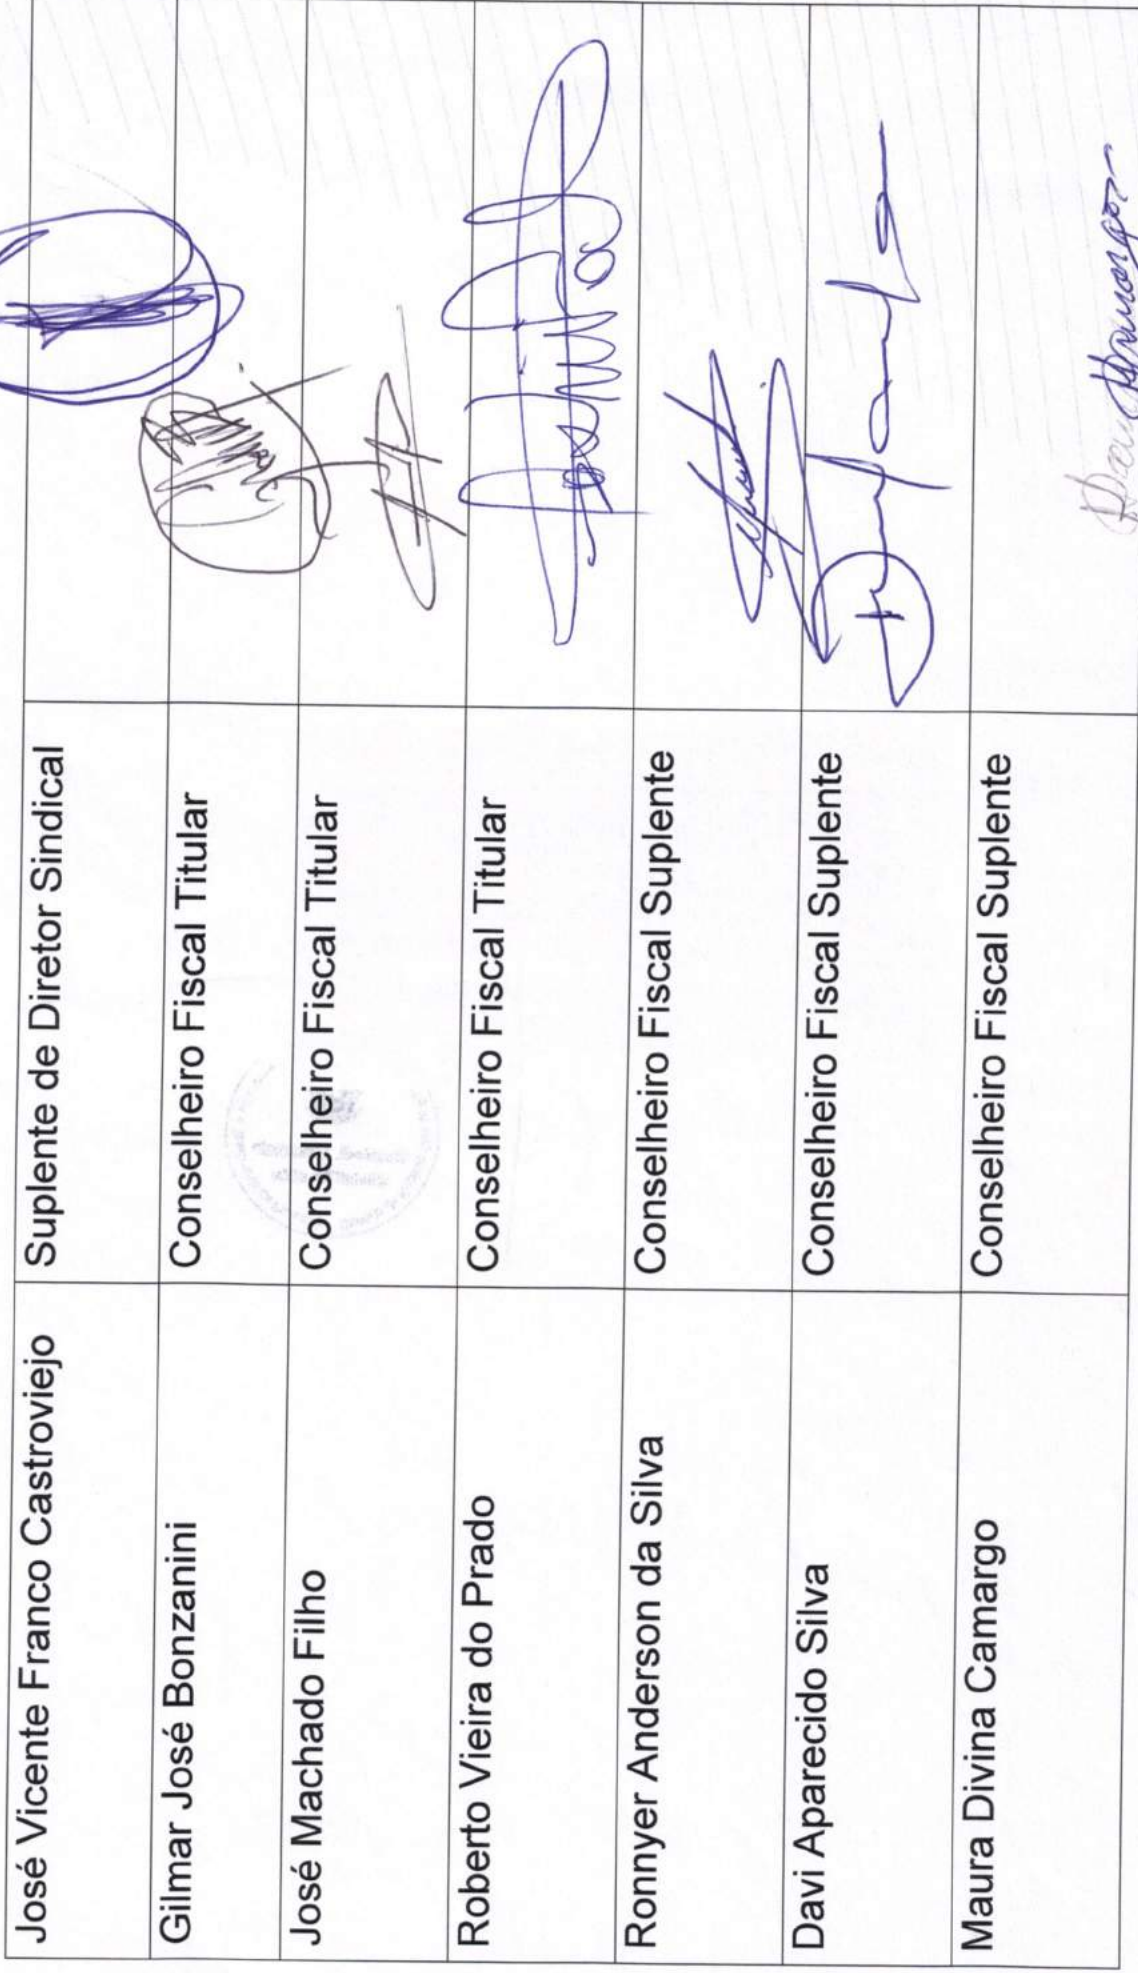 José Vicente Franco Castroviejo Suplente de Diretor Sindical
Gilmar José Bonzanini Conselheiro Fiscal Titular
José Machado Filho Conselheiro Fiscal Titular
Roberto Vieira do Prado Conselheiro Fiscal Titular
Ronnyer Anderson da Silva Conselheiro Fiscal Suplente
Davi Aparecido Silva Conselheiro Fiscal Suplente
Maura Divina Camargo Conselheiro Fiscal Suplente